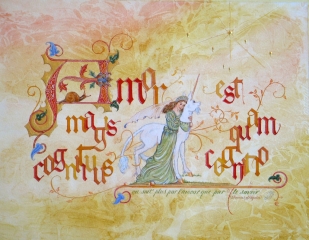 Amor est
magis quam
cognitivus cognitio
on sait plus par l'amour que par le savoir